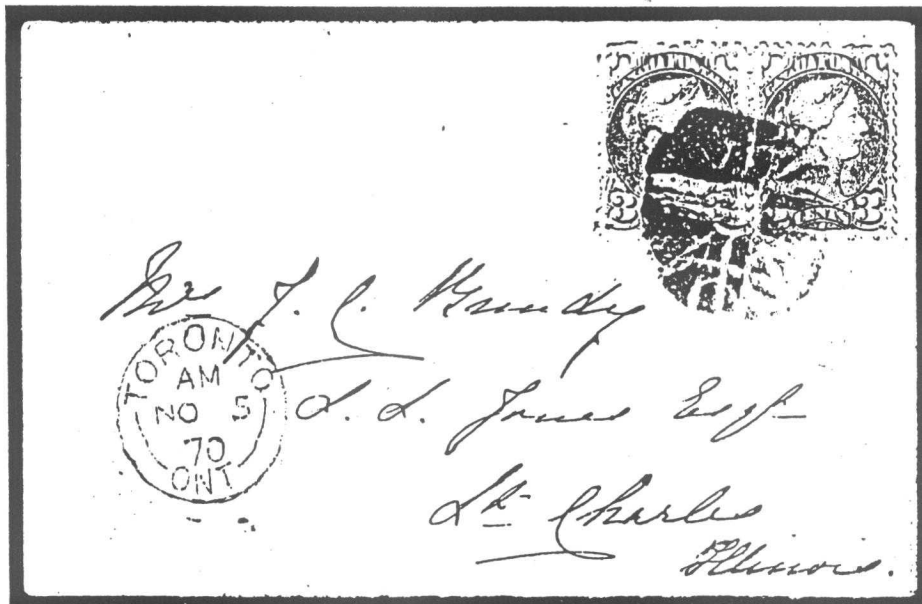 3 CENTS 3
Mrs J. C. Bundy
TORONTO
AM
NO 5
70
ONT
S. S. Jones Esqr
St Charles
Illinois.